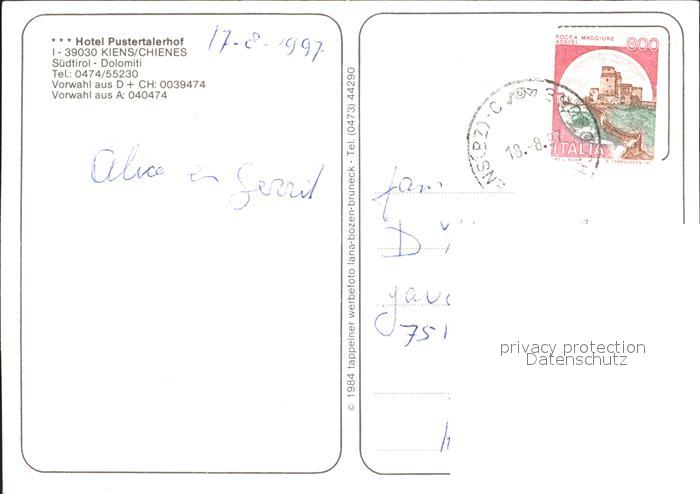 *** Hotel Pustertalerhof
I - 39030 KIENS/CHIENES
Südtirol - Dolomiti
Tel.: 0474/55230
Vorwahl aus D + CH: 0039474
Vorwahl aus A: 040474
17-8-1997
Alice en Gerrit
© 1984 tappeiner werbefoto lana-bozen-bruneck - Tel. (0473) 44290
ROCCA MAGGIORE
ASSISI
800
ITALIA
18.-8.97
fam
D
751
privacy protection
Datenschutz